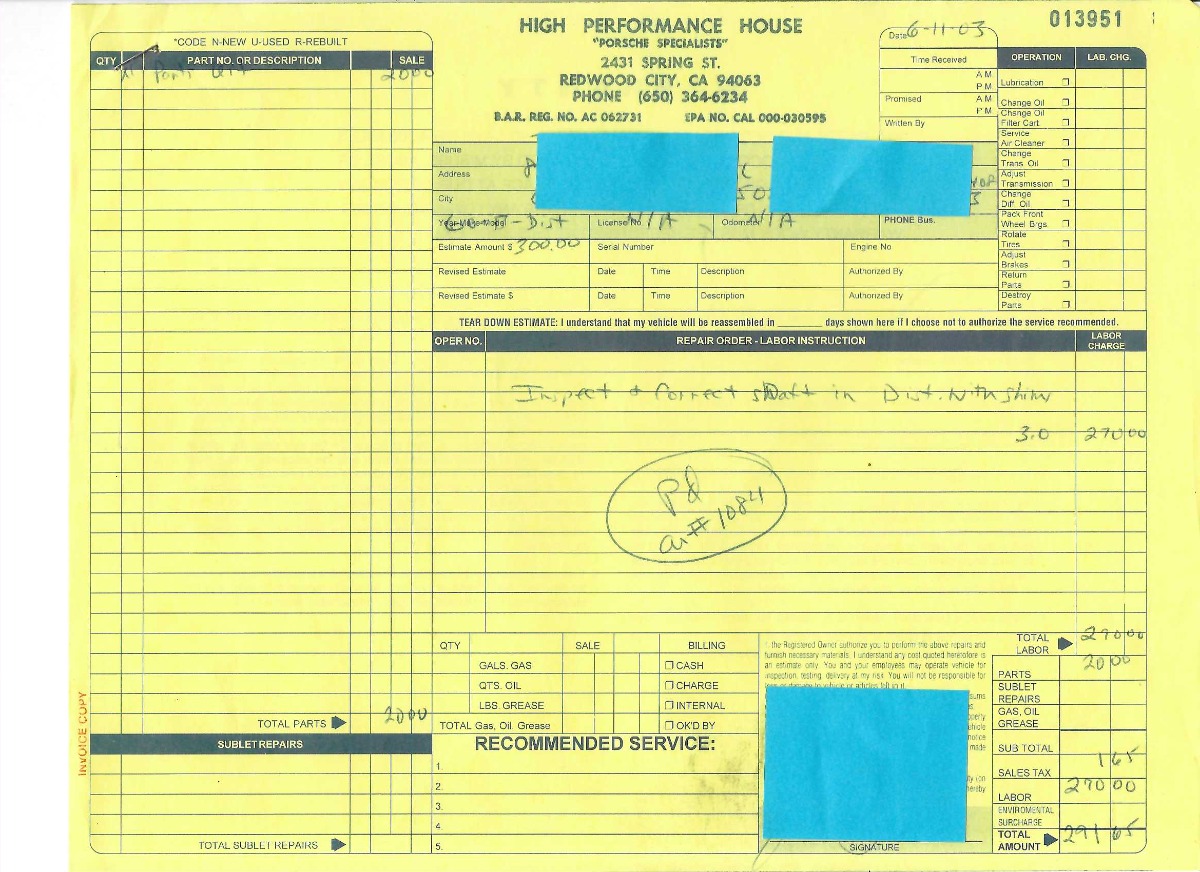 HIGH PERFORMANCE HOUSE
"PORSCHE SPECIALISTS"
2431 SPRING ST.
REDWOOD CITY, CA 94063
PHONE (650) 364-6234
B.A.R. REG. NO. AC 062731 EPA NO. CAL 000-030595
013951
*CODE N-NEW U-USED R-REBUILT
QTY PART NO. OR DESCRIPTION SALE
Parts 2000
Date 6-11-03
Time Received
A M
P M
Promised A M
P M
Written By
OPERATION LAB. CHG.
Lubrication
Change Oil
Change Oil
Filter Cart.
Service
Air Cleaner
Change
Trans. Oil
Adjust
Transmission
Change
Diff. Oil
Pack Front
Wheel Brgs.
Rotate
Tires
Adjust
Brakes
Return
Parts
Destroy
Parts
Name
Address
City
Year-Make-Model Dist License No. N/A Odometer N/A PHONE Bus.
Estimate Amount $ 300.00 Serial Number Engine No
Revised Estimate Date Time Description Authorized By
Revised Estimate $ Date Time Description Authorized By
TEAR DOWN ESTIMATE: I understand that my vehicle will be reassembled in ________ days shown here if I choose not to authorize the service recommended.
OPER NO. REPAIR ORDER - LABOR INSTRUCTION LABOR CHARGE
Inspect + Correct shaft in Dist. with shim
3.0 270 00
Pd
#1084
QTY SALE BILLING
GALS. GAS CASH
QTS. OIL CHARGE
LBS. GREASE INTERNAL
TOTAL Gas, Oil, Grease OK'D BY
the Registered Owner authorize you to perform the above repairs and
furnish necessary materials. I understand any cost quoted heretofore is
an estimate only. You and your employees may operate vehicle for
inspection, testing, delivery at my risk. You will not be responsible for
SIGNATURE
TOTAL LABOR 270 00
PARTS 20 00
SUBLET REPAIRS
GAS, OIL GREASE
SUB TOTAL
SALES TAX 1 65
LABOR 270 00
ENVIROMENTAL SURCHARGE
TOTAL AMOUNT 291 65
TOTAL PARTS 2000
SUBLET REPAIRS
TOTAL SUBLET REPAIRS
RECOMMENDED SERVICE:
1.
2.
3.
4.
5.
INVOICE COPY